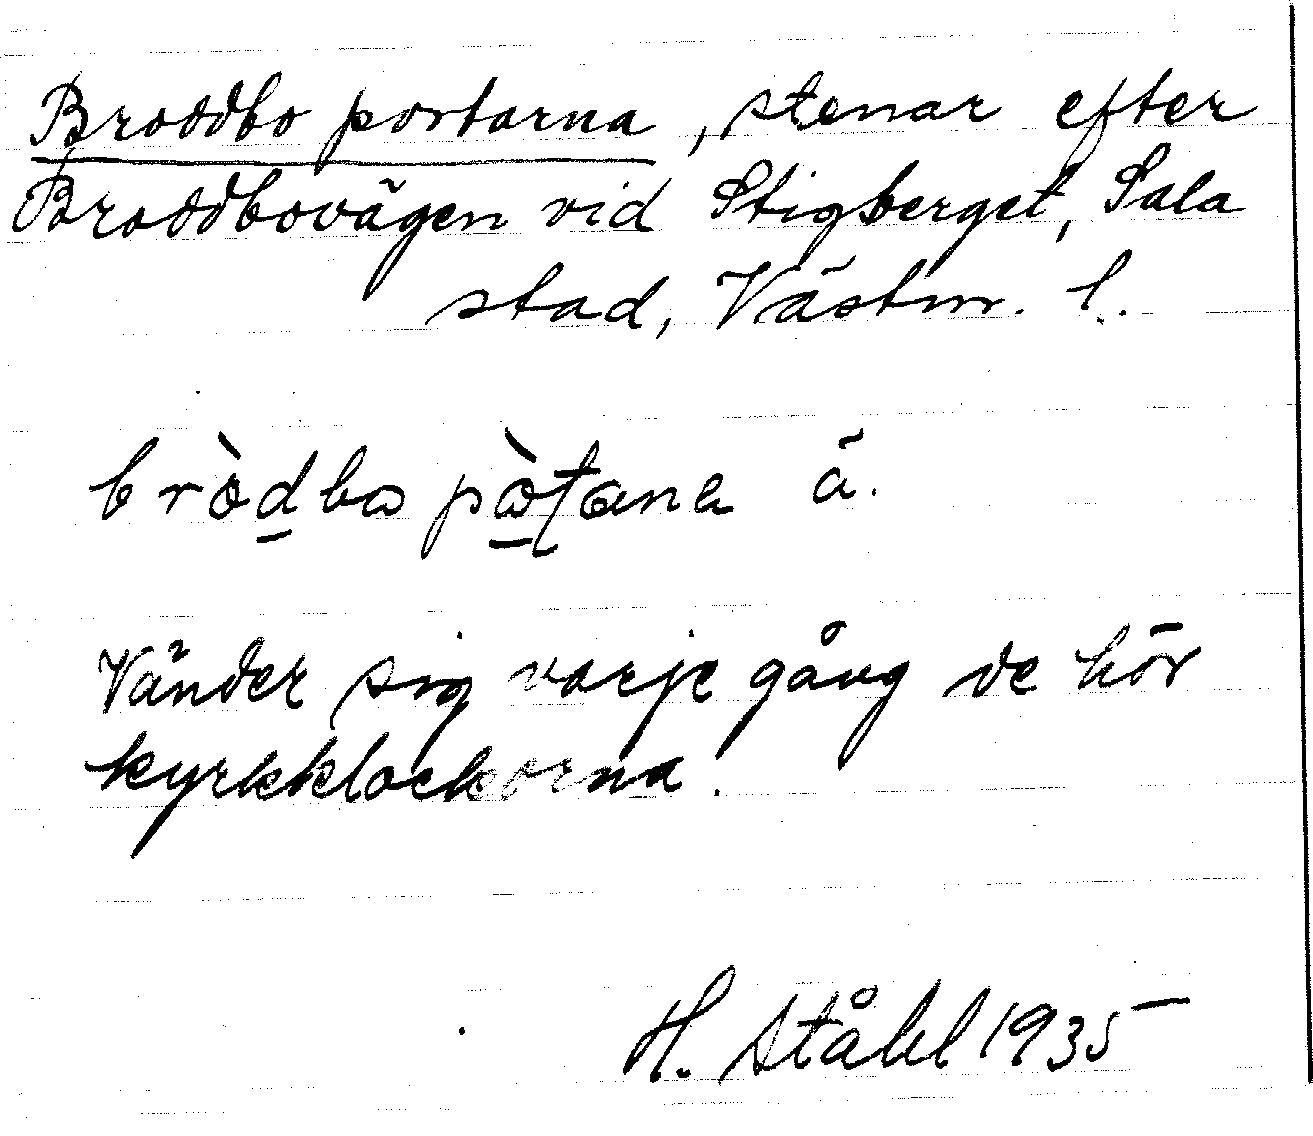 Broddbo portarna, stenar efter
Broddbovägen vid Stigberget, Sala
stad, Västm. l.
bròd̲ba pàt̲ana ä.
Vänder sig varje gång de hör
kyrkklockorna.
H. Ståhl 1935